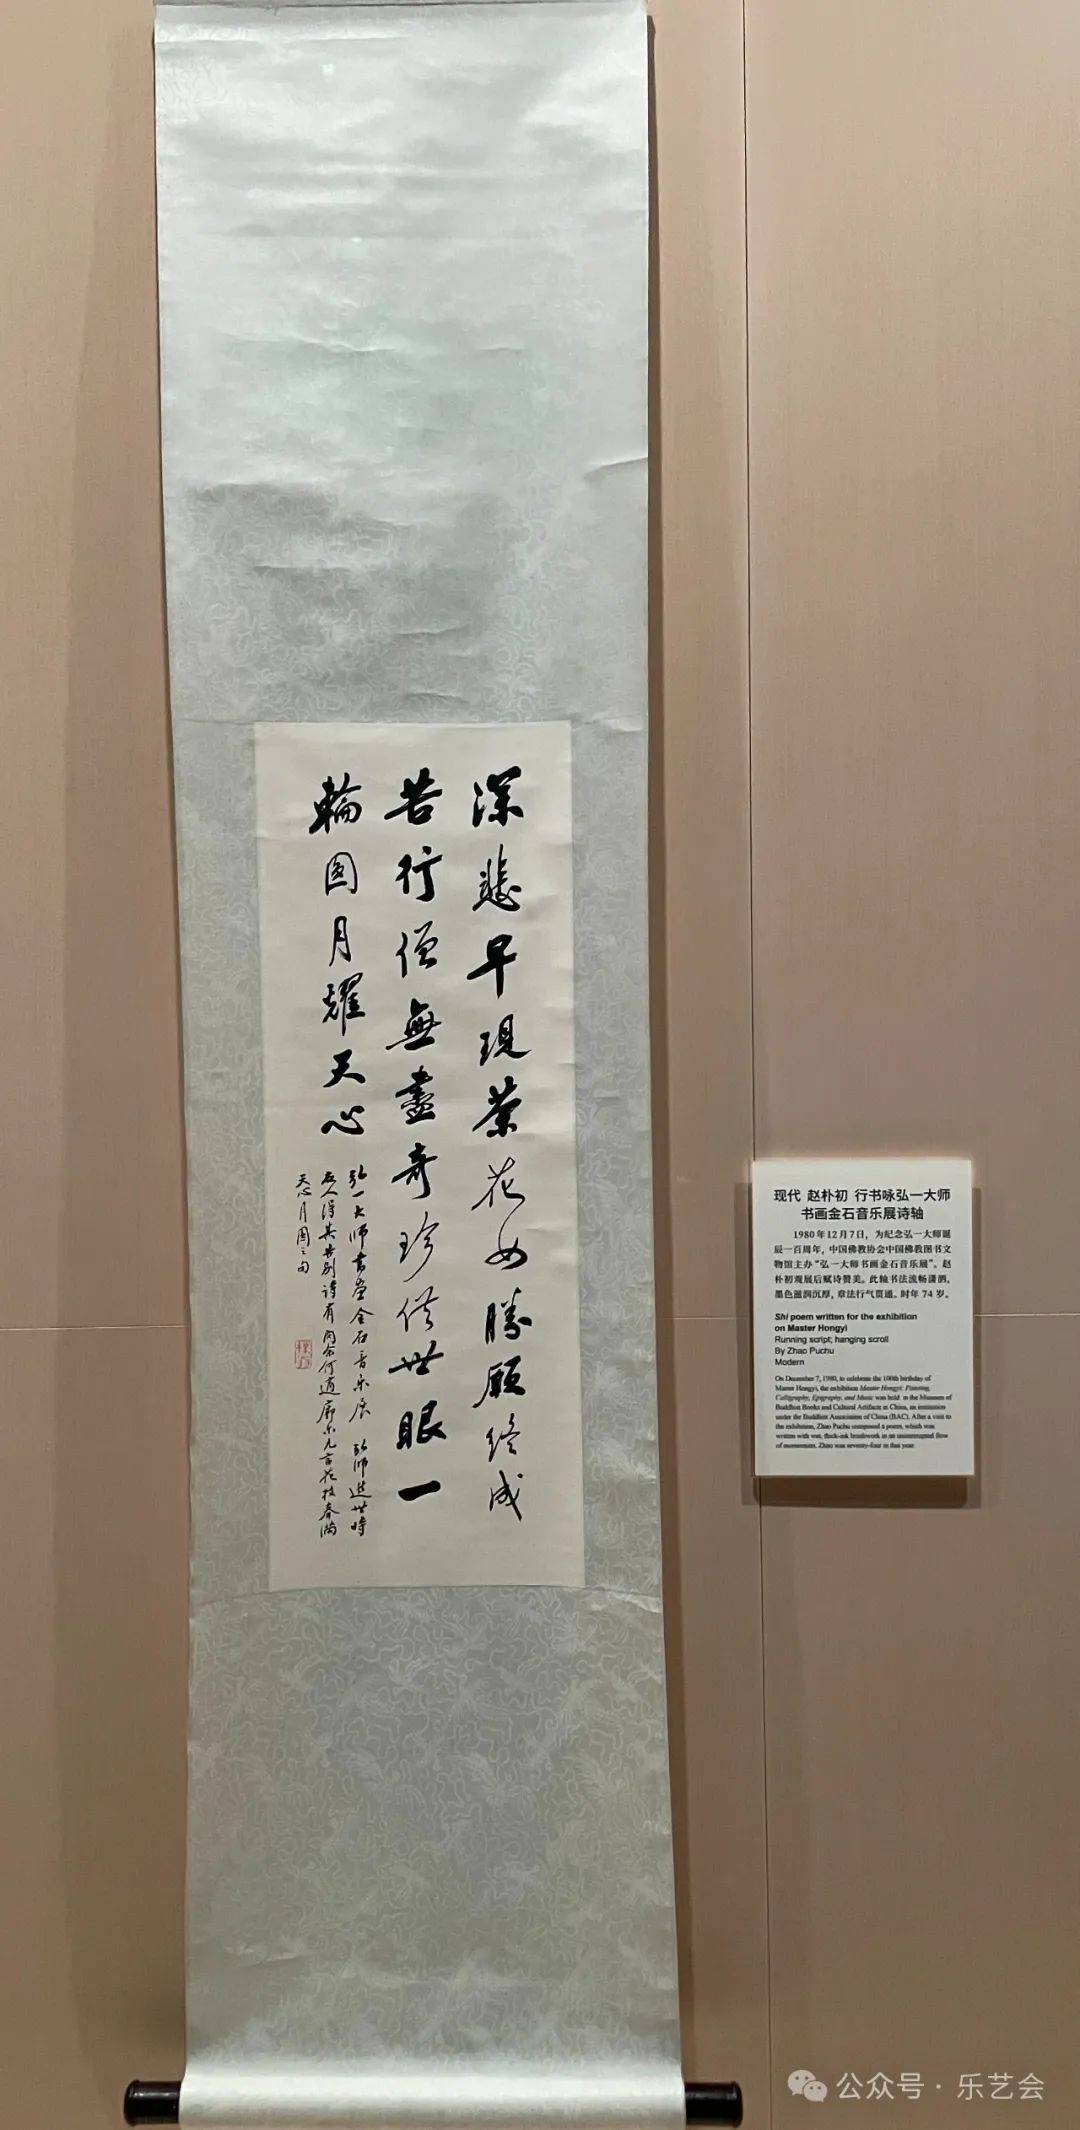 深悲早現茶花女勝願終成
苦行僧無盡奇珍供世眼一
輪圓月耀天心
弘一大師書畫金石音乐展 弘師逝世時
友人得其告别詩有问余何適廓尔亡言花枝春满
天心月圓之句
现代 赵朴初 行书咏弘一大师
书画金石音乐展诗轴
1980年12月7日，为纪念弘一大师诞
辰一百周年，中国佛教协会中国佛教图书文
物馆主办“弘一大师书画金石音乐展”。赵
朴初观展后赋诗赞美。此轴书法流畅潇洒，
墨色滋润沉厚，章法行气贯通。时年74岁。
Shi poem written for the exhibition
on Master Hongyi
Running script; hanging scroll
By Zhao Puchu
Modern
On December 7, 1980, to celebrate the 100th birthday of
Master Hongyi, the exhibition Master Hongyi: Painting,
Calligraphy, Epigraphy, and Music was held in the Museum of
Buddhist Books and Cultural Artifacts in China, an institution
under the Buddhist Association of China (BAC). After a visit to
the exhibition, Zhao Puchu composed a poem, which was
written with wet, thick-ink brushwork in an uninterrupted flow
of momentum. Zhao was seventy-four in that year.
公众号·乐艺会